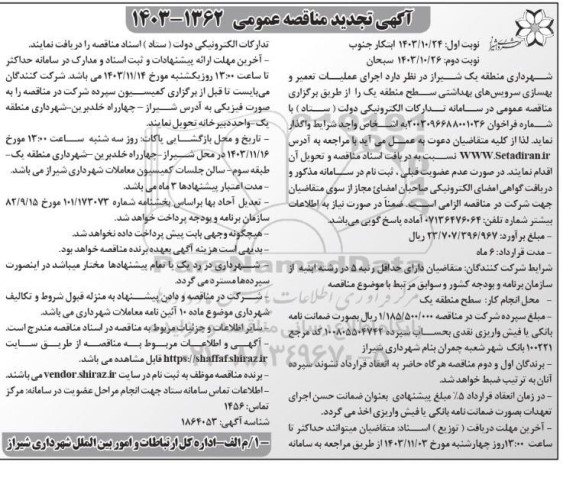 آگهی تجدید مناقصه عمومی ۱۳۶۲-۱۴۰۳
نوبت اول: ۱۴۰۳/۱۰/۲۴ ابتکار جنوب
نوبت دوم: ۱۴۰۳/۱۰/۲۶ سبحان
شهرداری منطقه یک شیراز در نظر دارد اجرای عملیات تعمیر و
بهسازی سرویس‌های بهداشتی سطح منطقه یک را از طریق برگزاری
مناقصه عمومی در سامانه تدارکات الکترونیکی دولت (ستاد) با
شماره فراخوان ۲۰۰۳۰۹۶۶۸۸۰۰۱۰۳۶ به اشخاص واجد شرایط واگذار
نماید. لذا از کلیه متقاضیان دعوت به عمل می آید با مراجعه به آدرس
WWW.Setadiran.ir نسبت به دریافت اسناد مناقصه و تحویل آن
اقدام نمایند. در صورت عدم عضویت قبلی، ثبت نام در سامانه مذکور و
دریافت گواهی امضای الکترونیکی صاحبان امضائ مجاز از سوی متقاضیان
جهت شرکت در مناقصه الزامی است. ضمناً در صورت نیاز به اطلاعات
بیشتر شماره تلفن: ۰۷۱۳۶۴۷۶۰۶۴ آماده پاسخ گویی می‌باشد.
- مبلغ برآورد: ۲۳/۷۰۷/۳۹۶/۹۶۷ ریال
- مدت قرارداد: ۶ ماه
شرایط شرکت کنندگان: متقاضیان دارای حداقل رتبه ۵ در رشته ابنیه از
سازمان برنامه و بودجه کشور و سوابق مرتبط با موضوع مناقصه
- محل انجام کار: سطح منطقه یک
- مبلغ سپرده شرکت در مناقصه ۱/۱۸۵/۵۰۰/۰۰۰ ریال بصورت ضمانت نامه
بانکی یا فیش واریزی نقدی بحساب سپرده ۱۰۰۸۰۵۵۰۴۷۴۴ کد مرجع
۱۰۰۲۲۱ بانک شهر شعبه چمران بنام شهرداری شیراز
- برندگان اول و دوم مناقصه هرگاه حاضر به انعقاد قرارداد نشوند سپرده
آنان به ترتیب ضبط خواهد شد.
- در زمان انعقاد قرارداد ۵٪ مبلغ پیشنهادی بعنوان ضمانت حسن اجرای
تعهدات بصورت ضمانت نامه بانکی یا فیش واریزی اخذ می گردد.
- آخرین مهلت دریافت (توزیع) اسناد: متقاضیان میتوانند حداکثر تا
ساعت ۱۳:۰۰ روز چهارشنبه مورخ ۱۴۰۳/۱۱/۰۳ از طریق مراجعه به سامانه
تدارکات الکترونیکی دولت (ستاد) اسناد مناقصه را دریافت نمایند.
- آخرین مهلت ارائه پیشنهادات و ثبت اسناد و مدارک در سامانه حداکثر
تا ساعت ۱۳:۰۰ روز یکشنبه مورخ ۱۴۰۳/۱۱/۱۴ می باشد. شرکت کنندگان
می‌بایست تا قبل از برگزاری کمیسیون سپرده شرکت در مناقصه را به
صورت فیزیکی به آدرس شیراز - چهارراه خلدبرین-شهرداری منطقه
یک-واحد دبیرخانه تحویل نمایند.
- تاریخ و محل بازگشایی پاکات: روز سه شنبه ساعت ۱۳:۰۰ مورخ
۱۴۰۳/۱۱/۱۶ در محل شیراز-چهارراه خلدبرین-شهرداری منطقه یک-
طبقه سوم-سالن جلسات کمیسیون معاملات شهرداری شیراز می باشد.
- مدت اعتبار پیشنهادها ۳ ماه می باشد.
- تعدیل آحاد بها براساس بخشنامه شماره ۱۰۱/۱۷۳۰۷۳ مورخ ۸۲/۹/۱۵
سازمان برنامه و بودجه پرداخت خواهد شد.
- هیچگونه وجهی بابت پیش پرداخت داده نخواهد شد.
- بدیهی است هزینه آگهی بعهده برنده مناقصه خواهد بود.
- شهرداری در رد یک یا تمام پیشنهادها مختار میباشد در اینصورت
سپرده‌ها مسترد می گردد.
- شرکت در مناقصه و دادن پیشنهاد به منزله قبول شروط و تکالیف
شهرداری موضوع ماده ۱۰ آئین نامه معاملات شهرداری می باشد.
- سایر اطلاعات و جزئیات مربوط به مناقصه در اسناد مناقصه مندرج است.
- آگهی و اطلاعات مربوط به مناقصه از طریق سایت
https://shaffaf.shiraz.ir قابل مشاهده می باشد.
- برنده مناقصه موظف به ثبت نام در سایت vendor.shiraz.ir می باشند.
- اطلاعات تماس سامانه ستاد جهت انجام مراحل عضویت در سامانه: مرکز
تماس: ۱۴۵۶
شناسه آگهی: ۱۸۶۴۰۵۳
۱/ م الف-اداره کل ارتباطات و امور بین الملل شهرداری شیراز
ParsNamadData